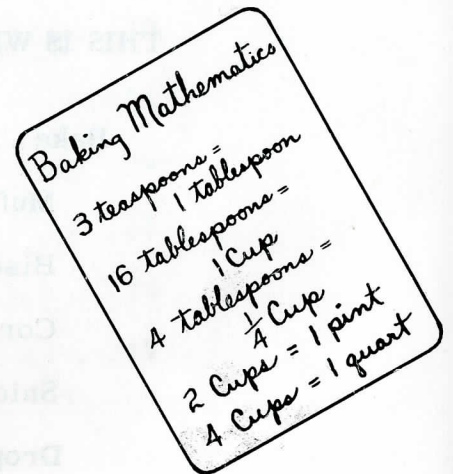 Baking Mathematics
3 teaspoons =
1 tablespoon
16 tablespoons =
1 Cup
4 tablespoons =
1/4 Cup
2 Cups = 1 pint
4 Cups = 1 quart
THIS IS W